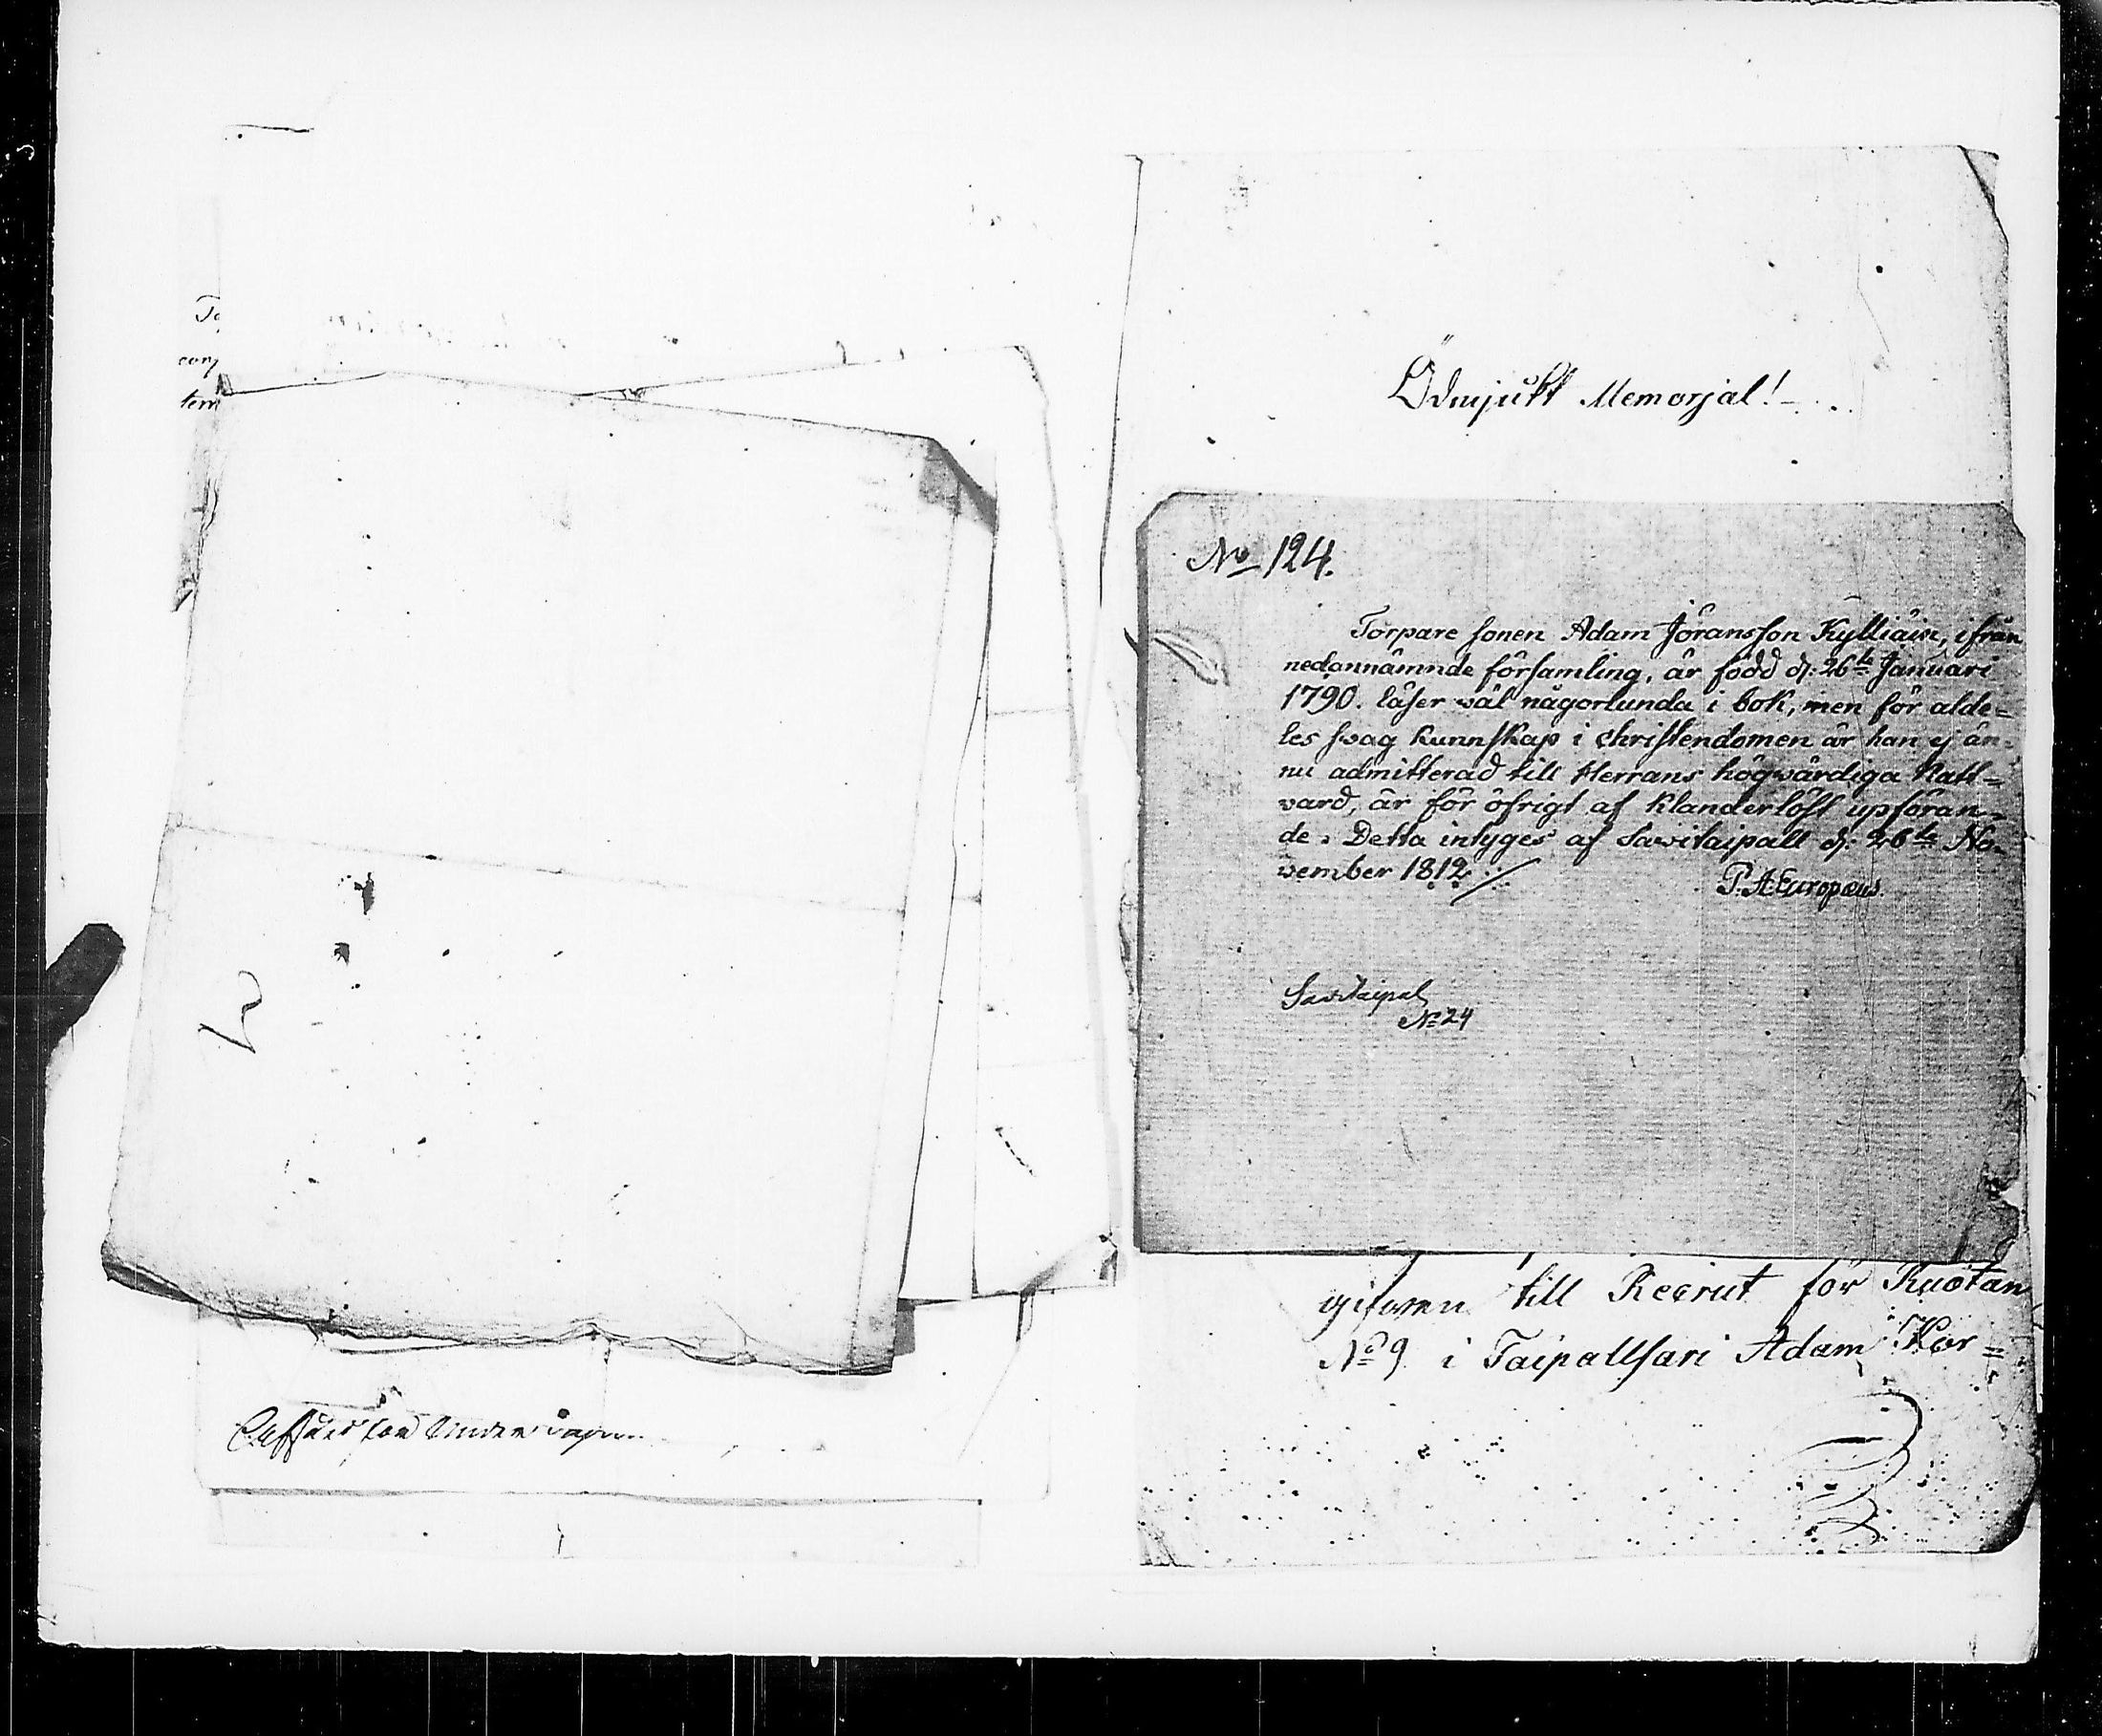 Ödmjukt Memorjal!
No 124.
Torpare sonen Adam Jöransson Kylliäin, ifrån
nedannämnde församling, är född d: 26te Januari
1790. läser wäl någorlunda i bok, men för alde=
les svag kunnskap i christendomen är han ej än=
nu admitterad till Herrans högwärdiga Natt=
vard, är för öfrigt af klanderlöst upföran=
de. Detta intyges af Sawitaipall d: 26te No=
vember 1812.
P. A. Europæus.
Sawitaipal
No 24
gifwen till Recrut för Ruotan
No 9 i Taipallsari Adam Kor=